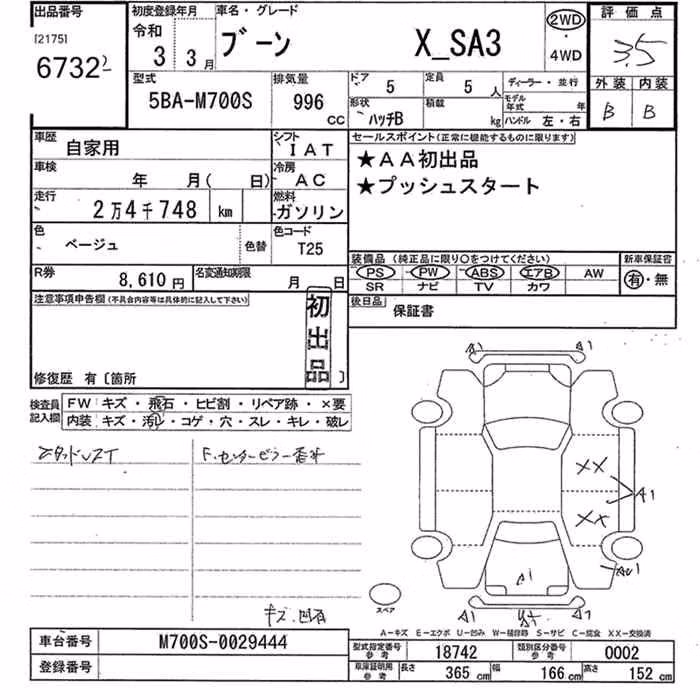 出品番号
[2175]
6732
初度登録年月
令和
3 3月
車名・グレード
ブーン X_SA3
2WD
・
4WD
評価点
3.5
外装 内装
B B
型式
5BA-M700S
排気量
996 CC
ドア 5
定員 5人
形状 ハッチB
積載 kg
ディーラー・並行
モデル年式 年
ハンドル 左・右
車歴 自家用
シフト IAT
車検 年 月( 日)
冷房 AC
走行 2万4千748 km
燃料 ガソリン
色 ベージュ 色替
色コード T25
R券 8,610円
名変通知期限 月 日
セールスポイント(正常に機能するものに限ります)
★AA初出品
★プッシュスタート
装備品(純正品に限り〇をつけてください)
PS PW ABS エアB AW
SR ナビ TV カワ
新車保証書
有・無
後日品 保証書
注意事項申告欄(不具合内容等は具体的に記入して下さい)
初出品
修復歴 有〔箇所 〕
検査員記入欄
FW キズ・飛石・ヒビ割・リペア跡・×要
内装 キズ・汚レ・コゲ・穴・スレ・キレ・破レ
キズ.凹有
A1 A1
XX
A1
XX
AU1
A1
A1
スペア
A-キズ E-エクボ U-凹み W-補修跡 S-サビ C-腐食 XX-交換済
車台番号 M700S-0029444
登録番号
型式指定番号 参考 18742
類別区分番号 参考 0002
車庫証明用 参考 長さ 365cm 幅 166cm 高さ 152cm